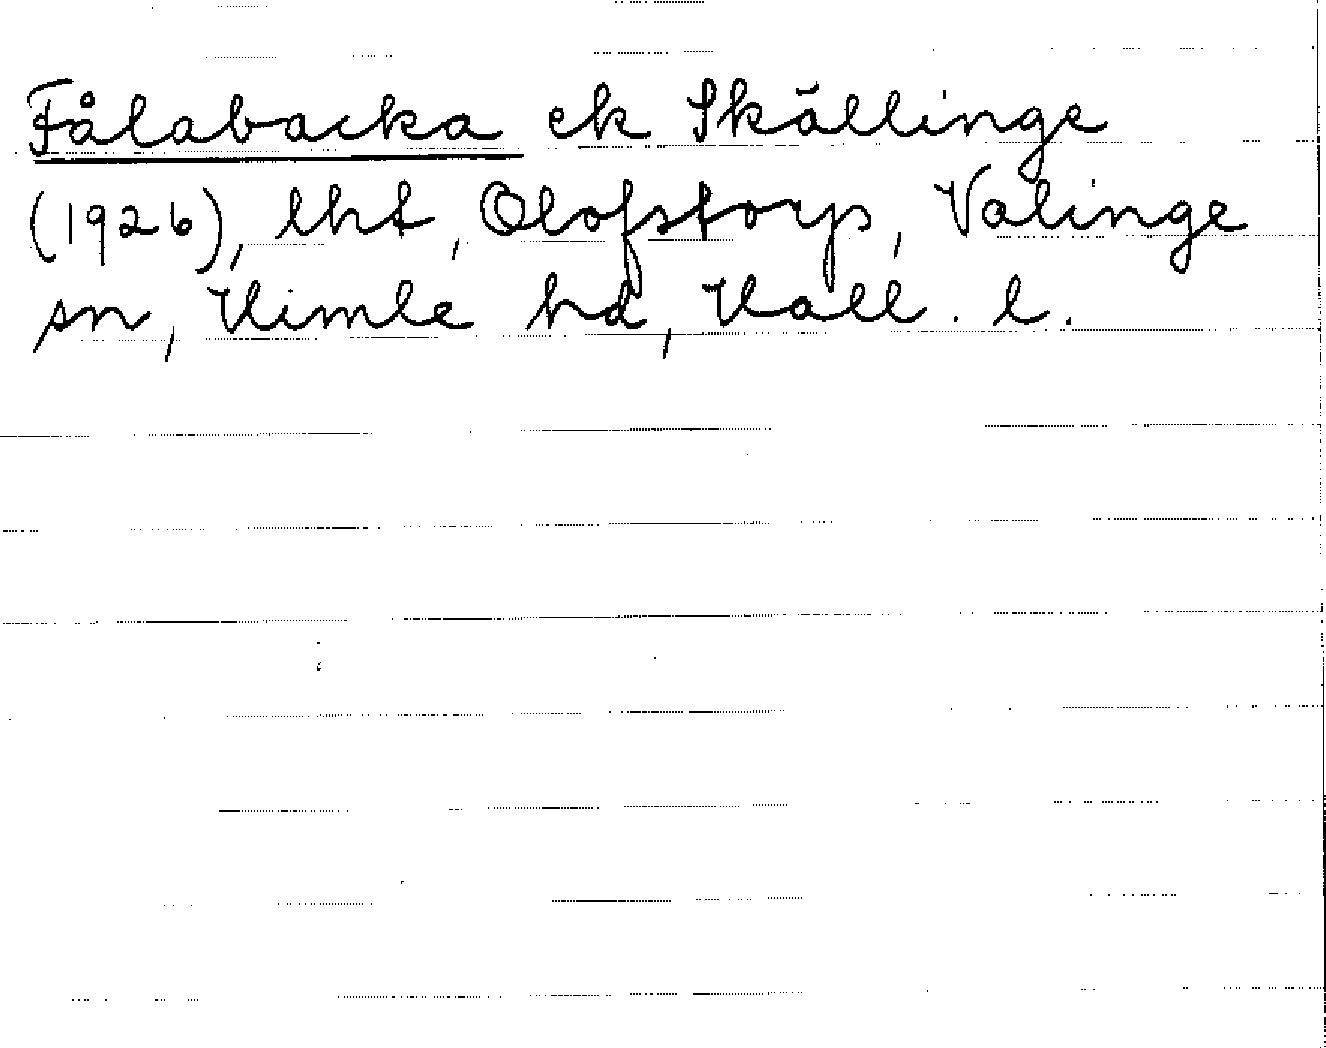 Fålabacka ek Skällinge
(1926), lht, Olofstorp, Valinge
sn, Himle hd, Hall. l.